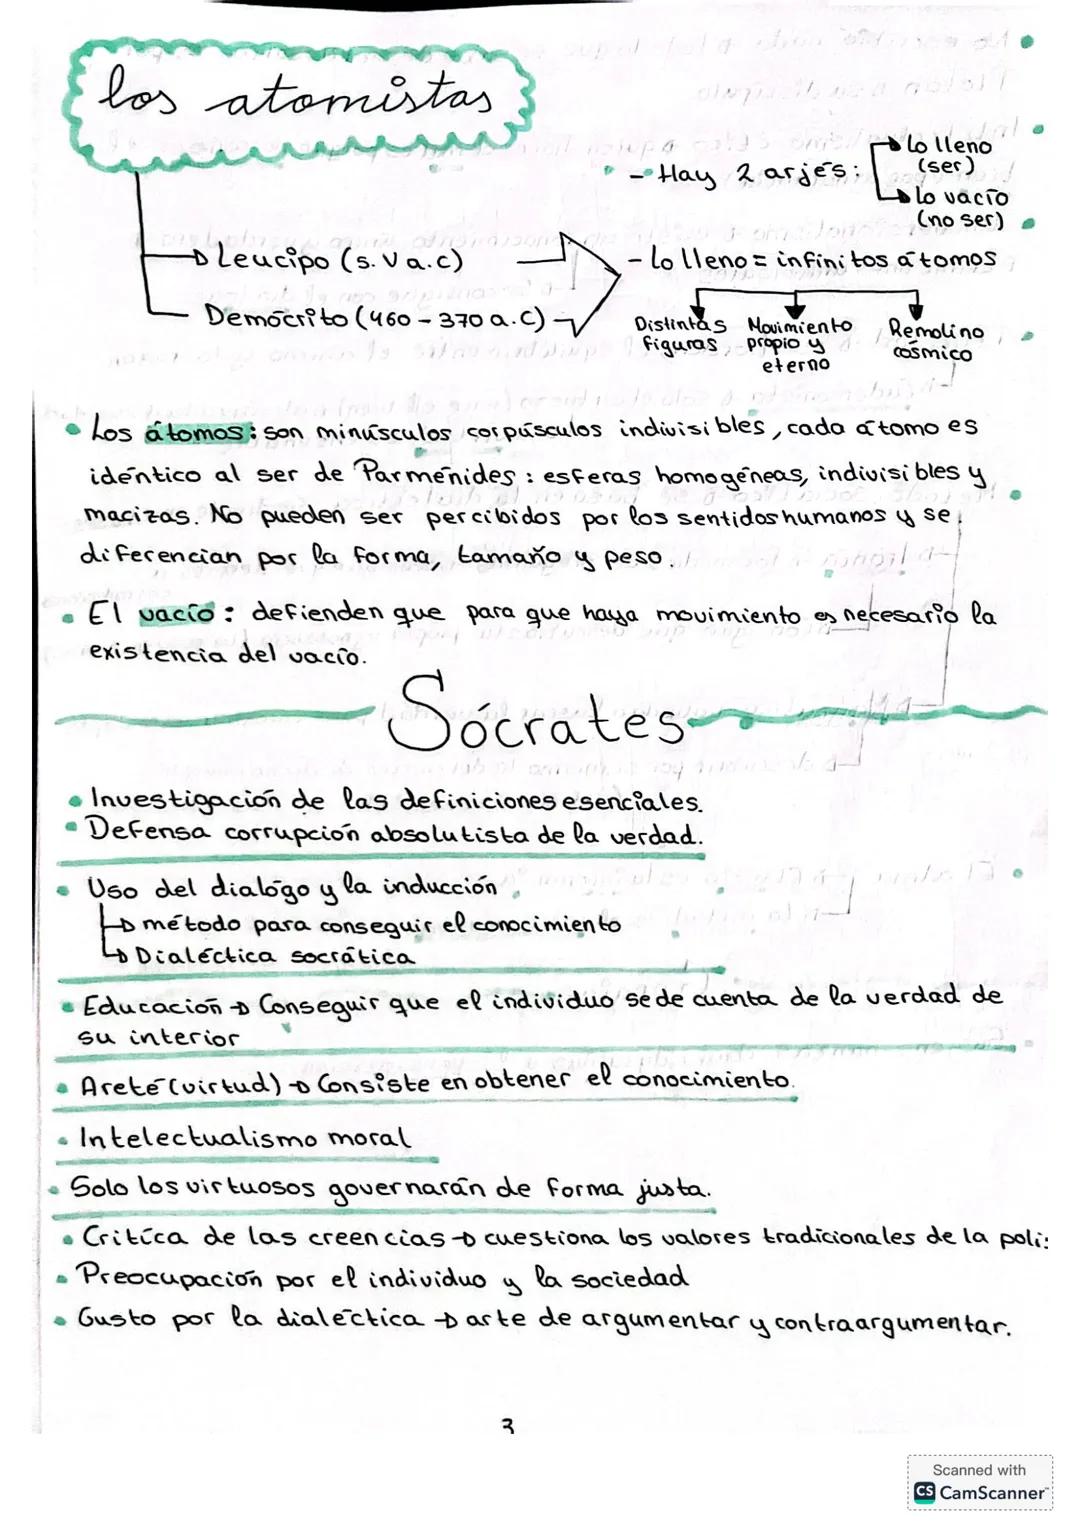 los atomistas
- Hay 2 arjés:
Lo lleno
(ser)
Lo vacío
(no ser)
Leucipo (s. V a.c)
- Lo lleno = infinitos átomos
Demócrito (460 - 370 a.C)
Distintas
figuras
Movimiento
propio y
eterno
Remolino
cósmico
• Los átomos: son minúsculos corpúsculos indivisibles, cada átomo es
idéntico al ser de Parménides: esferas homogéneas, indivisibles y
macizas. No pueden ser percibidos por los sentidos humanos y se
diferencian por la forma, tamaño y peso.
• El vacío: defienden que para que haya movimiento es necesario la
existencia del vacío.
Sócrates
• Investigación de las definiciones esenciales.
• Defensa corrupción absolutista de la verdad.
• Uso del dialogo y la inducción
método para conseguir el conocimiento
Dialéctica socrática
• Educación → Conseguir que el individuo se de cuenta de la verdad de
su interior
• Areté (virtud) → Consiste en obtener el conocimiento.
• Intelectualismo moral
• Solo los virtuosos governarán de forma justa.
• Crítica de las creencias → cuestiona los valores tradicionales de la polis
• Preocupación por el individuo y la sociedad
• Gusto por la dialéctica → arte de argumentar y contraargumentar.
3
Scanned with
CS CamScanner